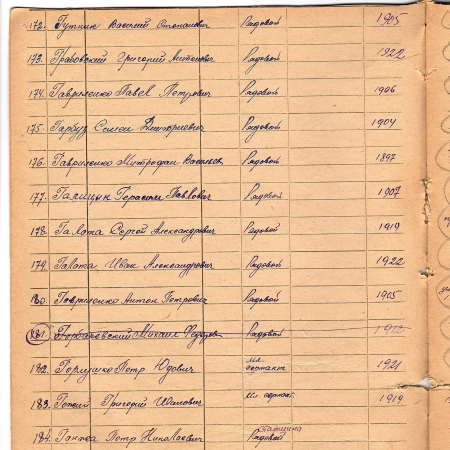 172. Гутник Василий Степанович Рядовой 1905
173. Грабовский Григорий Антонович Рядовой 1922
174. Гавриленко Павел Петрович Рядовой 1906
175. Гарбуз Семен Дмитриевич Рядовой 1904
176. Гавриленко Митрофан Рядовой 1897
177. Галицын Герасим Павлович Рядовой 1907
178. Галота Сергей Александрович Рядовой 1919
179. Галота Иван Александрович Рядовой 1922
180. Гавриленко Антон Петрович Рядовой 1905
181. Горбачевский Михаил Рядовой
182. Петр Юдович мл. сержант 1921
183. Григорий Иванович мл. сержант. 1919
184. Петр Николаевич старшина Рядовой